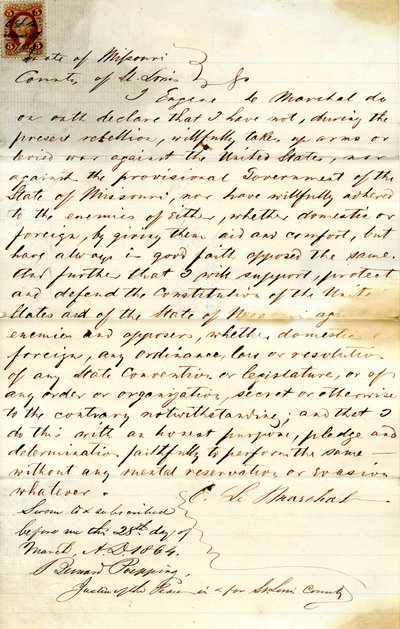 State of Missouri
County of St. Louis } ss
I Eugene Le Marchal do
on oath declare that I have not, during the
present rebellion, willfully taken up arms or
levied war against the United States, nor
against the provisional Government of the
State of Missouri, nor have willfully adhered
to the enemies of either, whether domestic or
foreign, by giving them aid and comfort, but
have always in good faith opposed the same.
And further that I will support, protect
and defend the Constitution of the United
States and of the State of Missouri
enemies and opposers, whether domestic
foreign, any ordinance, law or resolution
of any State Convention or legislature, or of
any order or organization, secret or otherwise
to the contrary notwithstanding; and that I
do this with an honest purpose, pledge and
determination faithfully to perform the same –
without any mental reservation or evasion
whatever.
E. Le Marchal
Sworn to & subscribed
before me this 28th day of
March A.D. 1864.
Bernard Poepping,
Justice of the Peace in & for St. Louis County